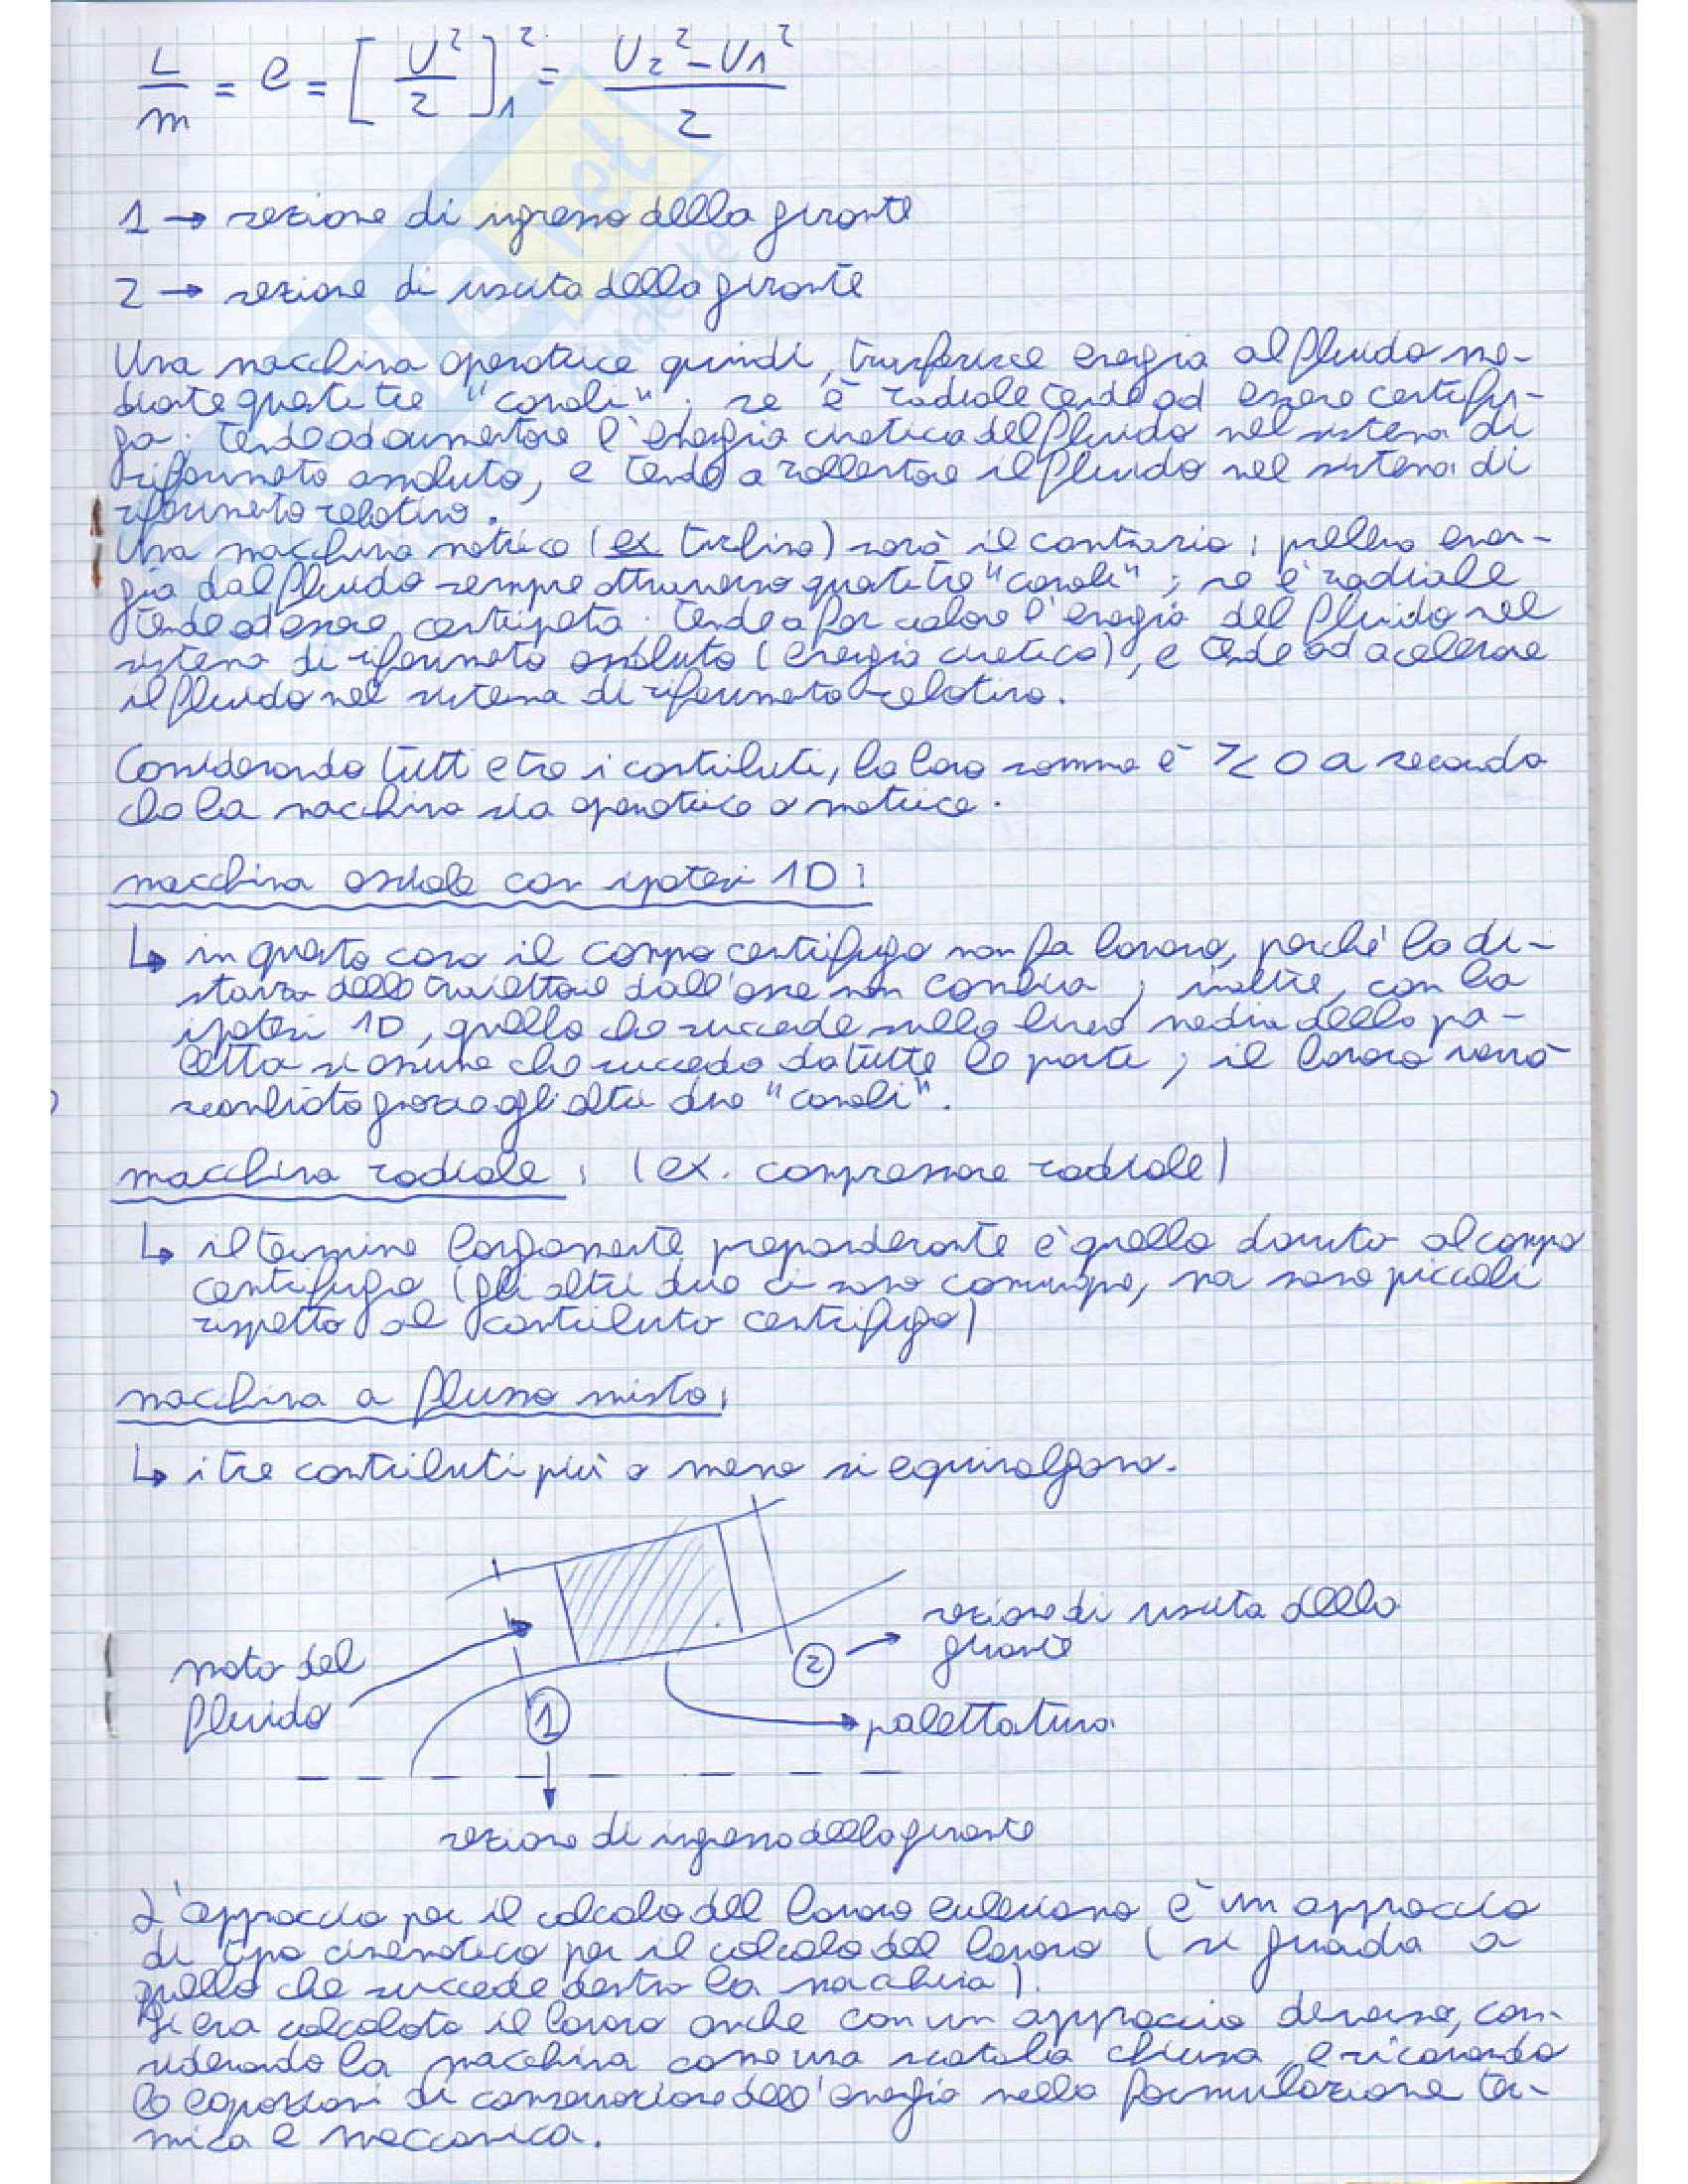 L/m = e = [U²/2]₁² = (U₂² - U₁²)/2
1 → sezione di ingresso della girante
2 → sezione di uscita della girante
Una macchina operatrice quindi, trasferisce energia al fluido me-
diante questi tre "canali"; se è radiale tende ad essere centrifu-
ga. Tende ad aumentare l'energia cinetica del fluido nel sistema di
riferimento assoluto, e tende a rallentare il fluido nel sistema di
riferimento relativo.
Una macchina motrice (ex turbina) sarà il contrario; preleva ener-
gia dal fluido sempre attraverso questi tre "canali"; se è radiale
tende ad essere centripeta. Tende a far calare l'energia del fluido nel
sistema di riferimento assoluto (energia cinetica), e tende ad acelerare
il fluido nel sistema di riferimento relativo.
Considerando tutti e tre i contributi, la loro somma è ≷ 0 a seconda
che la macchina sia operatrice o motrice.
macchina assiale con ipotesi 1D:
↳ in questo caso il campo centrifugo non fa lavoro, perché la di-
stanza delle traiettorie dall'asse non cambia; inoltre, con la
ipotesi 1D, quello che succede sulla linea media della pa-
letta si assume che succeda da tutte le parti; il lavoro verrà
scambiato grazie agli altri due "canali".
macchina radiale: (ex. compressore radiale)
↳ il termine largamente preponderante è quello dovuto al campo
centrifugo (gli altri due ci sono comunque, ma sono piccoli
rispetto al contributo centrifugo)
macchina a flusso misto:
↳ i tre contributi più o meno si equivalgono.
sezione di uscita della
girante
moto del
fluido
1
2
palettatura
sezione di ingresso della girante
L'approccio per il calcolo del lavoro euleriano è un approccio
di tipo cinematico per il calcolo del lavoro (si guarda a
quello che succede dentro la macchina).
Si era calcolato il lavoro anche con un approccio diverso, con-
siderando la macchina come una scatola chiusa e ricavando
le equazioni di conservazione dell'energia nella formulazione ter-
mica e meccanica.